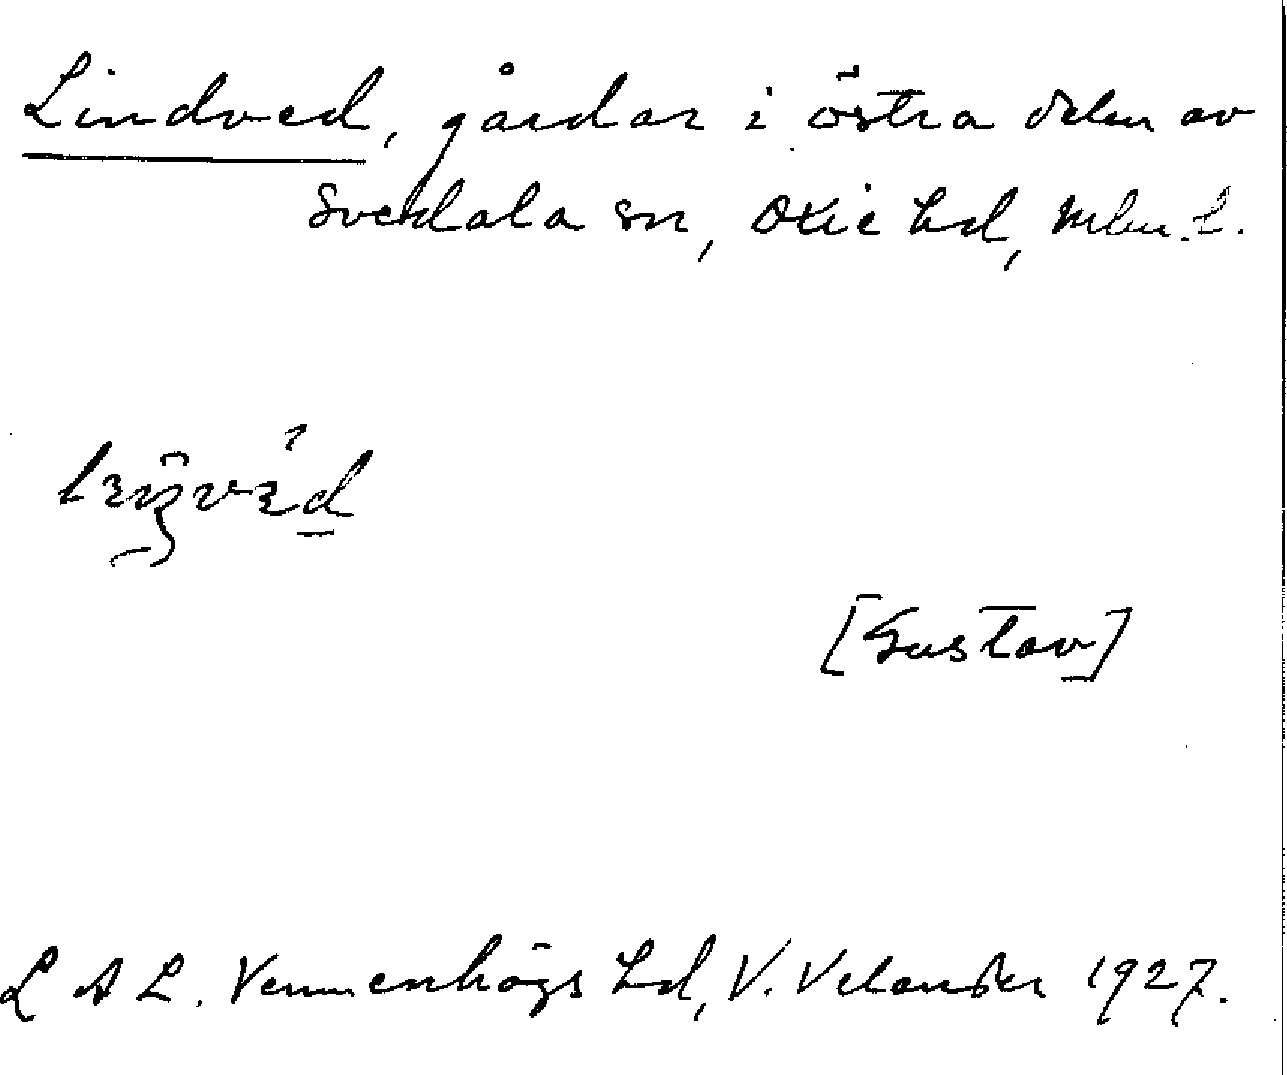 Lindved, gårdar i östra delen av
Svedala sn, Oxie hd, Mlm. l.
[Gustav]
L A L. Vemmenhögs hd, V. Velander 1927.